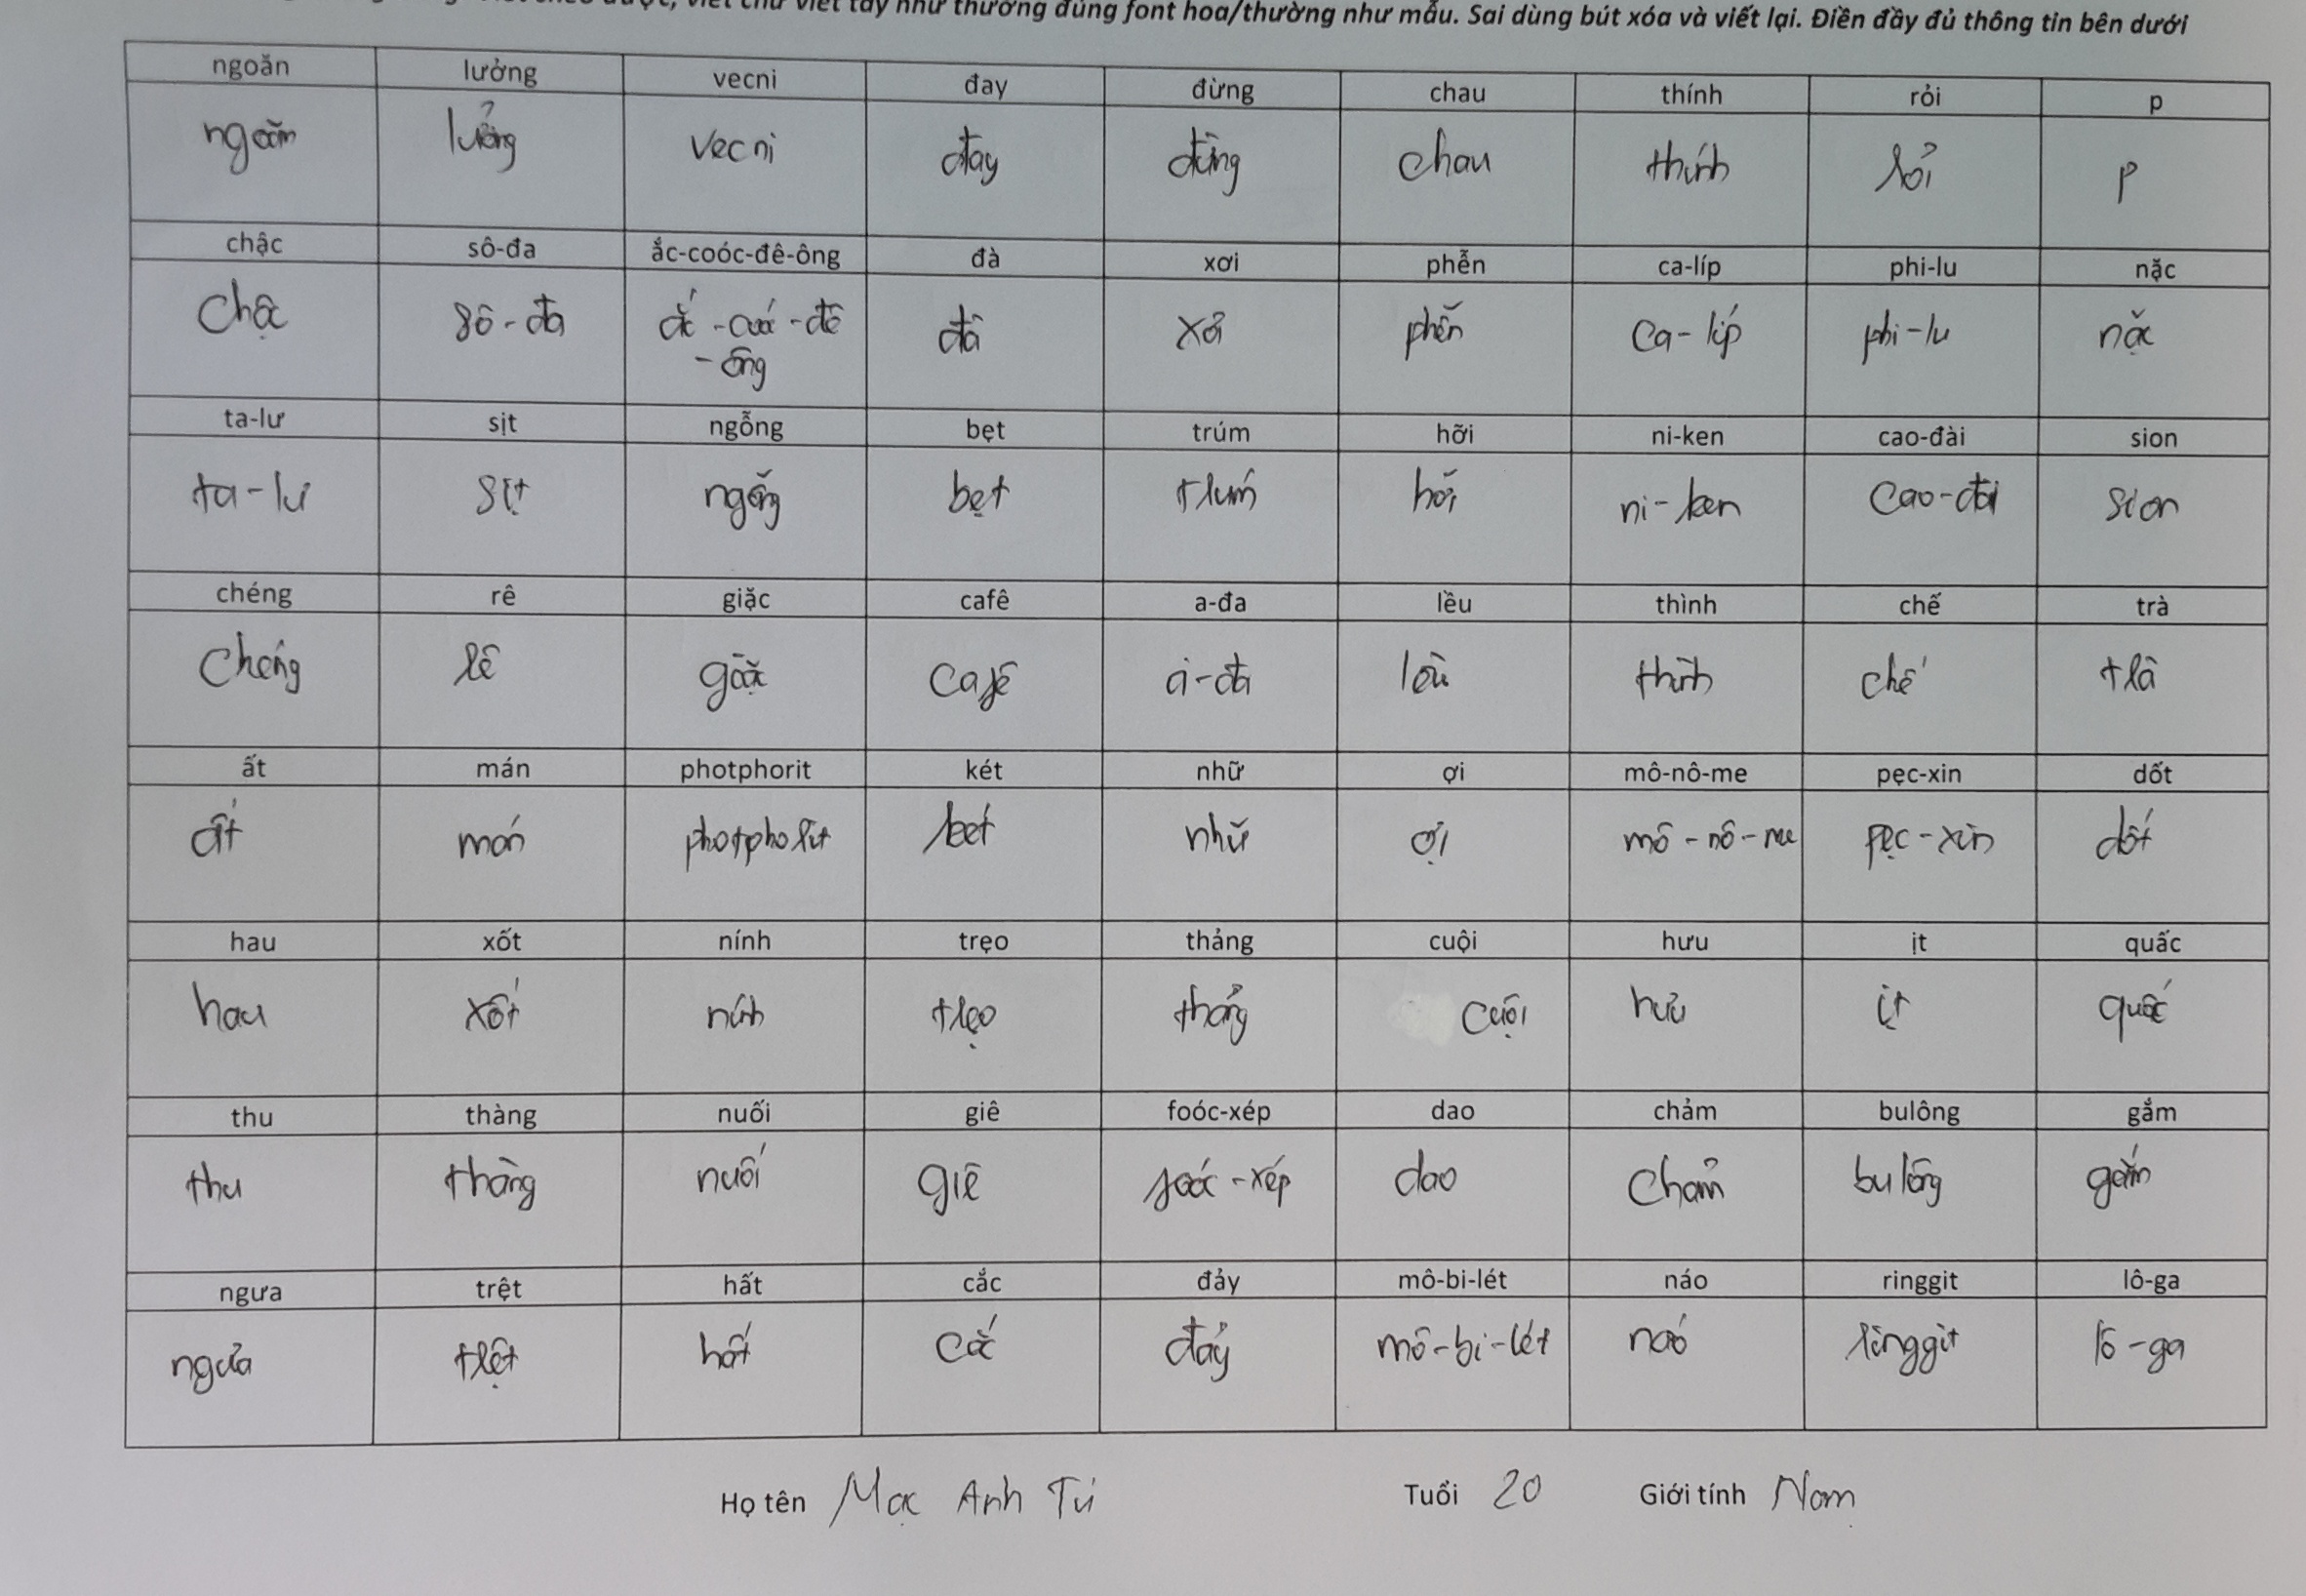 viết chữ viết tay như thường đúng font hoa/thường như mẫu. Sai dùng bút xóa và viết lại. Điền đầy đủ thông tin bên dưới
ngoăn lưởng vecni đay đừng chau thính rỏi p
ngoăn lưởng vecni đay đừng chau thính rỏi p
chậc sô-đa ắc-coóc-đê-ông đà xơi phễn ca-líp phi-lu nặc
chậc sô-đa ắc-coóc-đê
-ông đà xơi phễn ca-líp phi-lu nặc
ta-lư sịt ngỗng bẹt trúm hỡi ni-ken cao-đài sion
ta-lư sịt ngỗng bẹt trúm hỡi ni-ken cao-đài sion
chéng rê giặc cafê a-đa lều thình chế trà
chéng rê giặc cafê a-đa lều thình chế trà
ất mán photphorit két nhữ ợi mô-nô-me pẹc-xin dốt
ất mán photphorit két nhữ ợi mô-nô-me pẹc-xin dốt
hau xốt nính trẹo thảng cuội hưu ịt quấc
hau xốt nính trẹo thảng cuội hưu ịt quấc
thu thàng nuối giê foóc-xép dao chảm bulông gắm
thu thàng nuối giê foóc-xép dao chảm bulông gắm
ngưa trệt hất cắc đảy mô-bi-lét náo ringgit lô-ga
ngưa trệt hất cắc đảy mô-bi-lét náo ringgit lô-ga
Họ tên Mạc Anh Tú Tuổi 20 Giới tính Nam